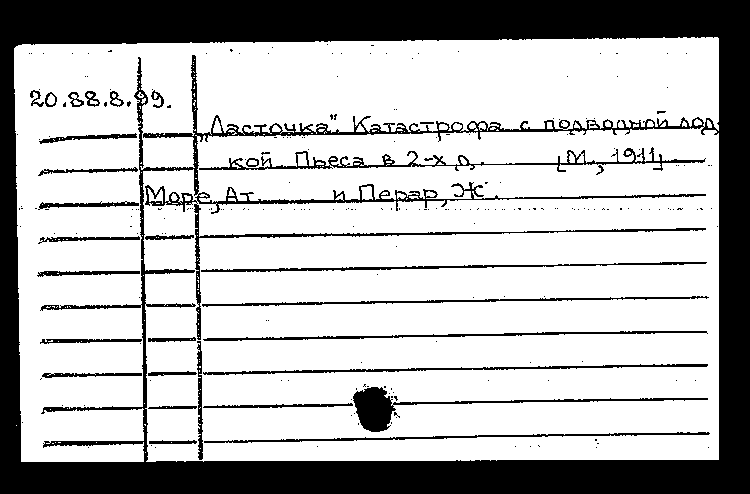 20.88.8.99.
„Ласточка". Катастрофа с подводной лод
кой. Пьеса в 2-х д. [М., 1911]
Море, Ат. и Перар, Ж.